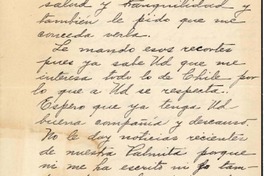 salud y tranquilidad y
también le pido que me
conceda verla.
Le mando esos recortes
pues ya sabe Ud que me
interesa todo lo de Chile por
lo que a Ud se respecta.
Espero que ya tenga Ud
buena compañía y descanso.
No le doy noticias recientes
de nuestra Palmita porque
ni me ha escrito ni yo tam-